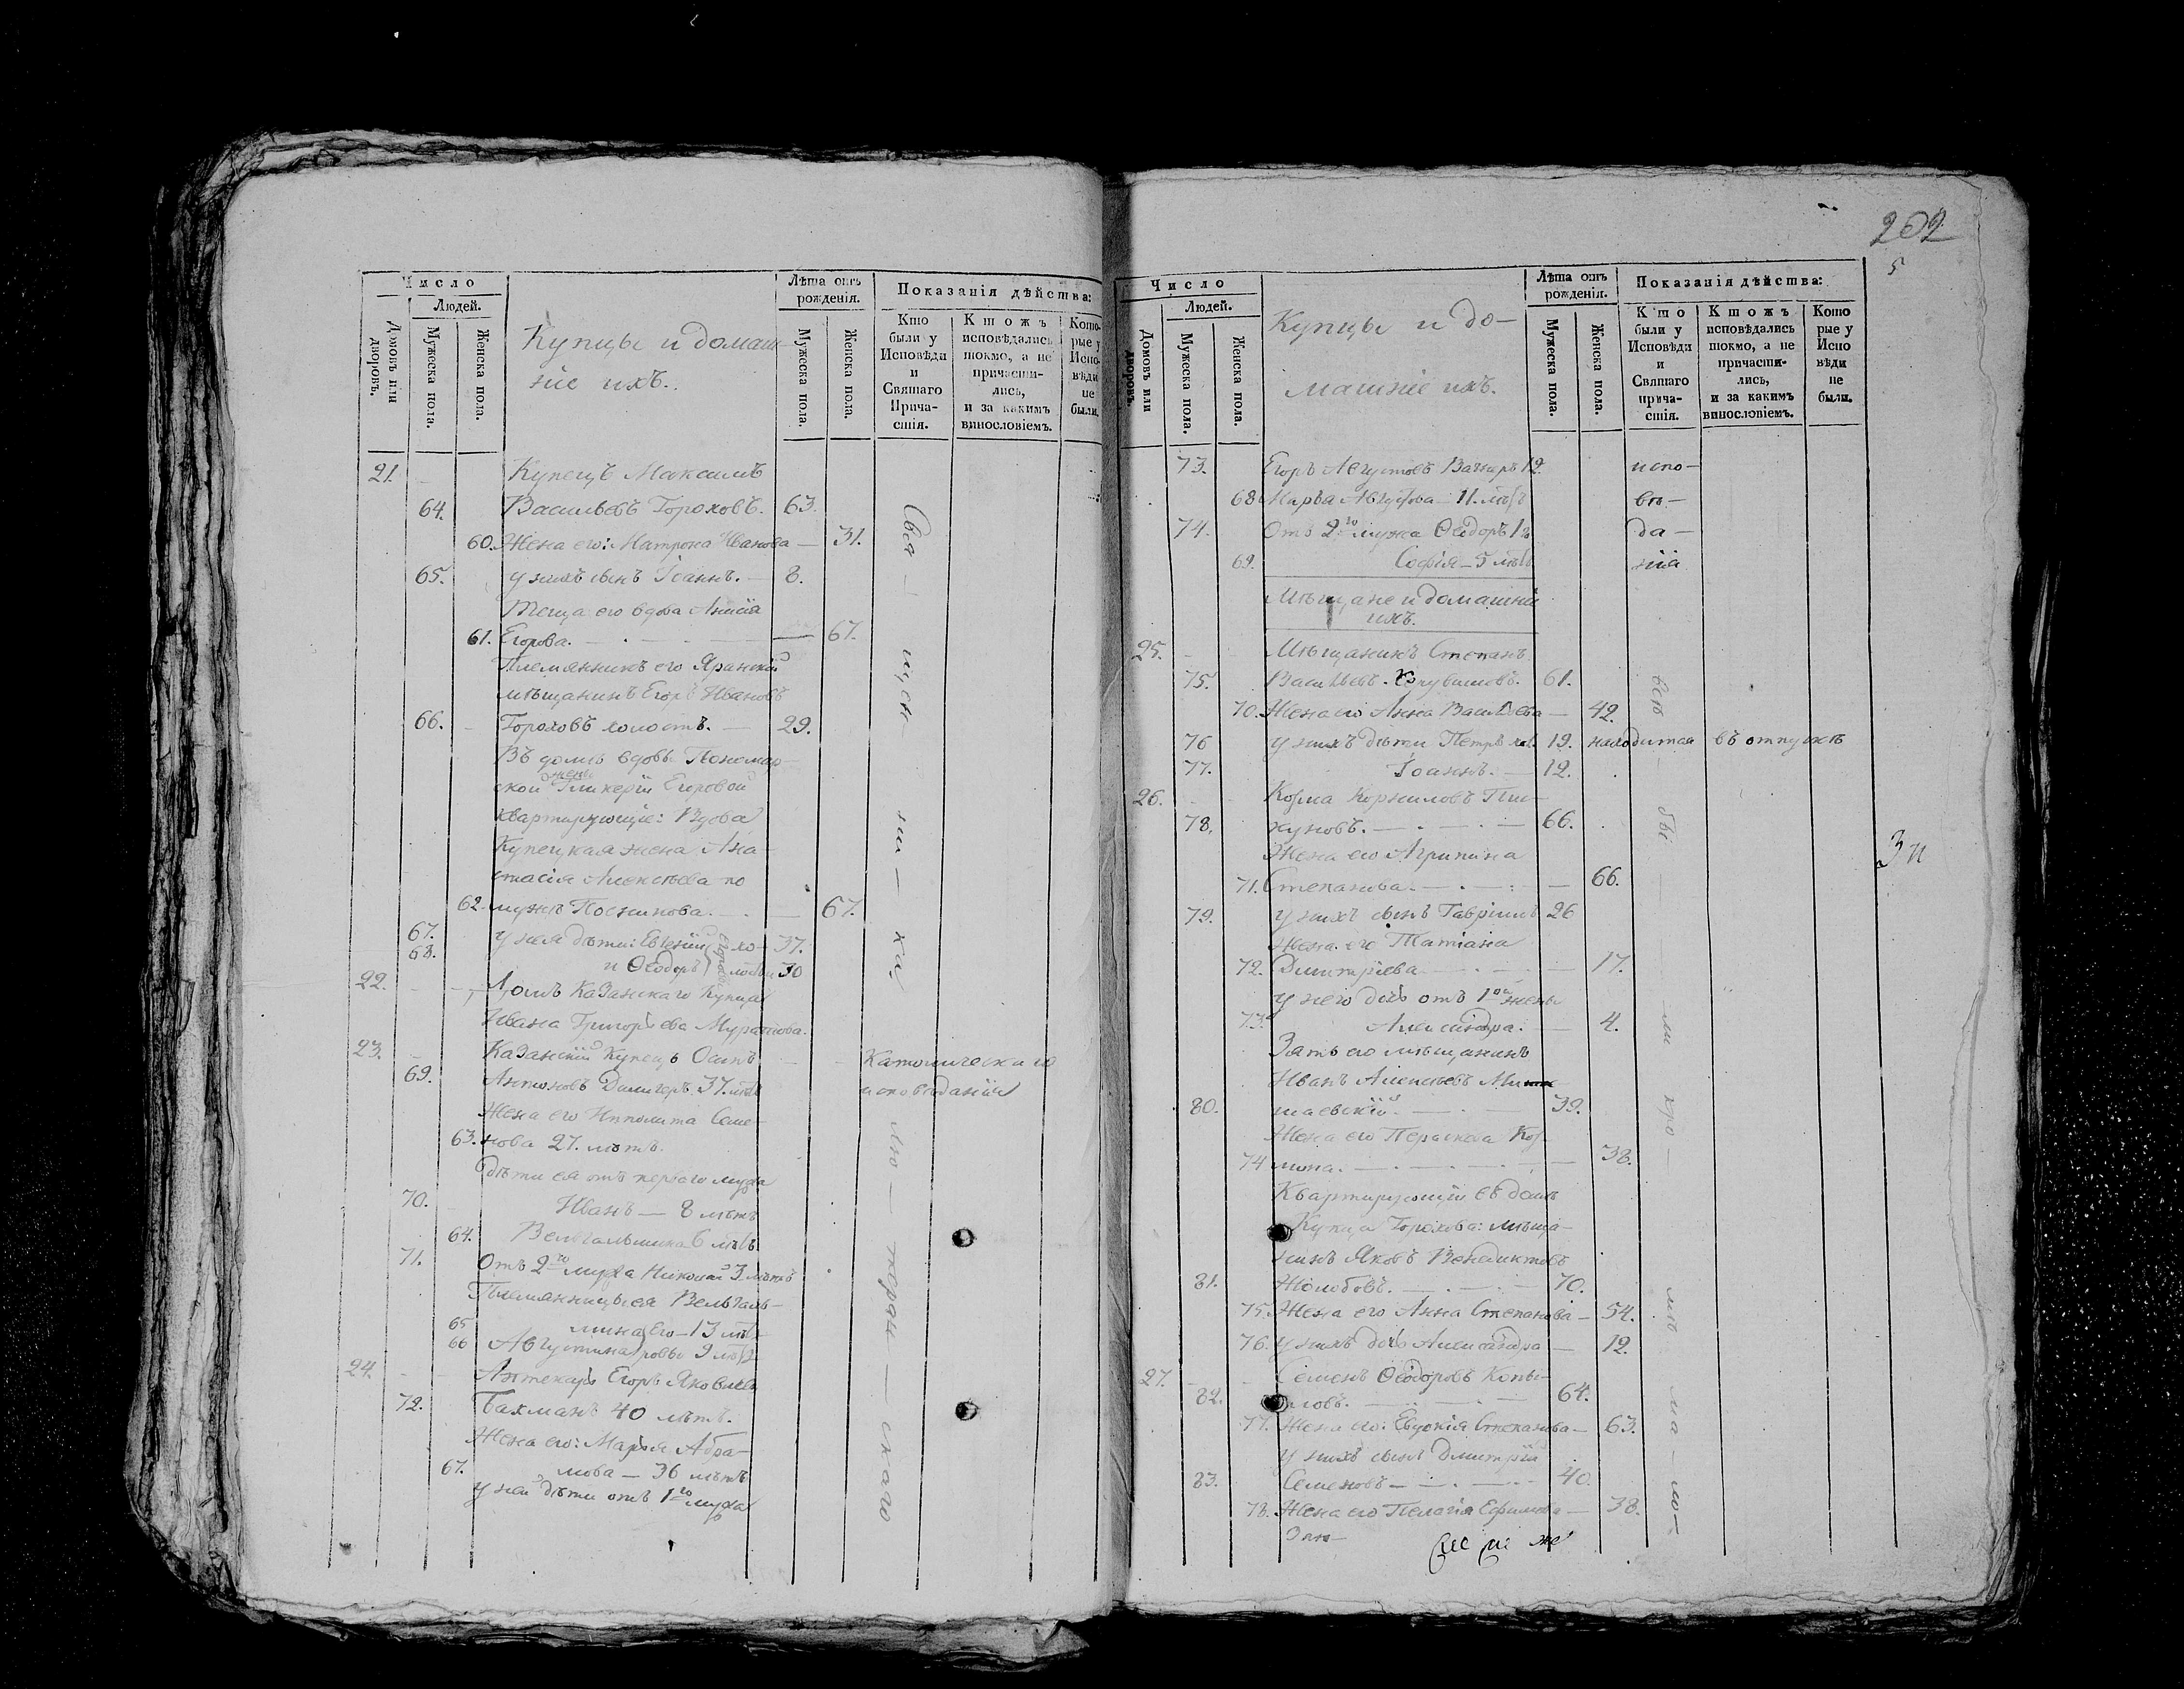 Число
Людей.
Домовъ или дворовъ.
Мужеска пола.
Женска пола.
Купцы и домаш-
ніе ихъ.
Лѣта отъ рожденія.
Мужеска пола.
Женска пола.
Показанія дѣйства:
Кто были у Исповѣди и Святаго Прича-стія.
Ктожъ исповѣдались токмо, а не причасти-лись, и за какимъ винословіемъ.
Кото-рые у Испо-вѣди не были.
21. Купецъ Максимъ
64. Васильевъ Гороховъ. 63.
60. Жена его: Матрона Иванова — 31.
65. у нихъ сынъ Іоаннъ. — 8.
Теща его вдова Анисія
61. Егорова. — 67.
Племянникъ его Яранскій
мѣщанинъ Егоръ Ивановъ
66. Гороховъ холостъ. — 29.
Въ домѣ вдовы Пономар-
ской жены Гликеріи Егоровой
квартирующіе: Вдова
Купецкая жена Ана-
стасія Алексѣева по
62. мужѣ Посникова. — 67.
67. у нея дѣти: Евгеній хо- 37.
68. и Ѳеодоръ лосты 30
22. Домъ Казанскаго Купца
Ивана Григорьева Муратова.
23. Казанскій Купецъ Осипъ Католическаго
69. Антоновъ 37. лѣтъ исповѣданія
Жена его Ипполита Семе-
63. нова 27. лѣтъ.
дѣти ея отъ перваго мужа
70. Иванъ — 8 лѣтъ
64. Вельгельмина 6 лѣтъ
71. Отъ 2го мужа Николай 3 лѣтъ
Племянницы ея Вельгель-
65 мина Его- 13 лѣтъ
66 Августина ровы 9 лѣтъ
24. Аптекарь Егоръ Яковлевъ
72. Бахманъ 40 лѣтъ.
Жена его: Марья Абра-
67. мова — 36 лѣтъ
у ней дѣти отъ 1го мужа
Свя — щен — ни — ка
Лю — теран — скаго
202
5
Число
Людей.
Домовъ или дворовъ.
Мужеска пола.
Женска пола.
Купцы и до-
машніе ихъ.
Лѣта отъ рожденія.
Мужеска пола.
Женска пола.
Показанія дѣйства:
Кто были у Исповѣди и Святаго прича-стія.
Ктожъ исповѣдались токмо, а не причасти-лись, и за какимъ винословіемъ.
Кото рые у Испо вѣди не были.
73. Егоръ Августовъ Вагнеръ 12. испо-
68 Марья Августова — 11. лѣтъ вѣ-
74. Отъ 2го мужа Ѳеодоръ да-
69. Софія — 5 лѣтъ нія
Мѣщане и домашніе
ихъ.
25. Мѣщанинъ Степанъ
75. Васильевъ 61.
70. Жена его Анна Васильева — 42.
76 у нихъ дѣти Петръ хол. 19. находится въ отпускѣ
77. Іоаннъ. — 12.
26. Козма Корниловъ Пи-
78. хуновъ. — 66.
Жена его Агрипина
71. Степанова. — 66.
79. у нихъ сынъ Гавріилъ 26
Жена его Татіана
72. Димитріева — 17.
у него дочь отъ 1ой жены
73. Александра. — 4.
Зять его мѣщанинъ
Иванъ Алексѣевъ Ми-
80. шаевскій. — 39.
Жена его Параскева Коз-
74 мина. — 38.
Квартирующіи въ домѣ
Купца Горохова: мѣща-
нинъ Яковъ Венедиктовъ
81. Жолобовъ. — 70.
75. Жена его Анна Степанова — 54.
76. у нихъ дочь Александра — 12.
27. Семенъ Ѳеодоровъ Копы-
82. ловъ. — 64.
77. Жена его: Евдокія Степанова — 63.
у нихъ сынъ Дмитрій
83. Семеновъ — 40.
78. Жена его Пелагія Ефимова — 38.
всѣ — бы — ли кро — мѣ ма — ло-
Зи